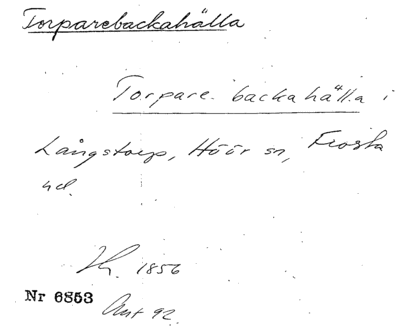 Torparebackahälla
Torpare. backahälla i
Långstorp, Höör sn, Frosta
hd.
1856
Nr 6853
Ant 92.